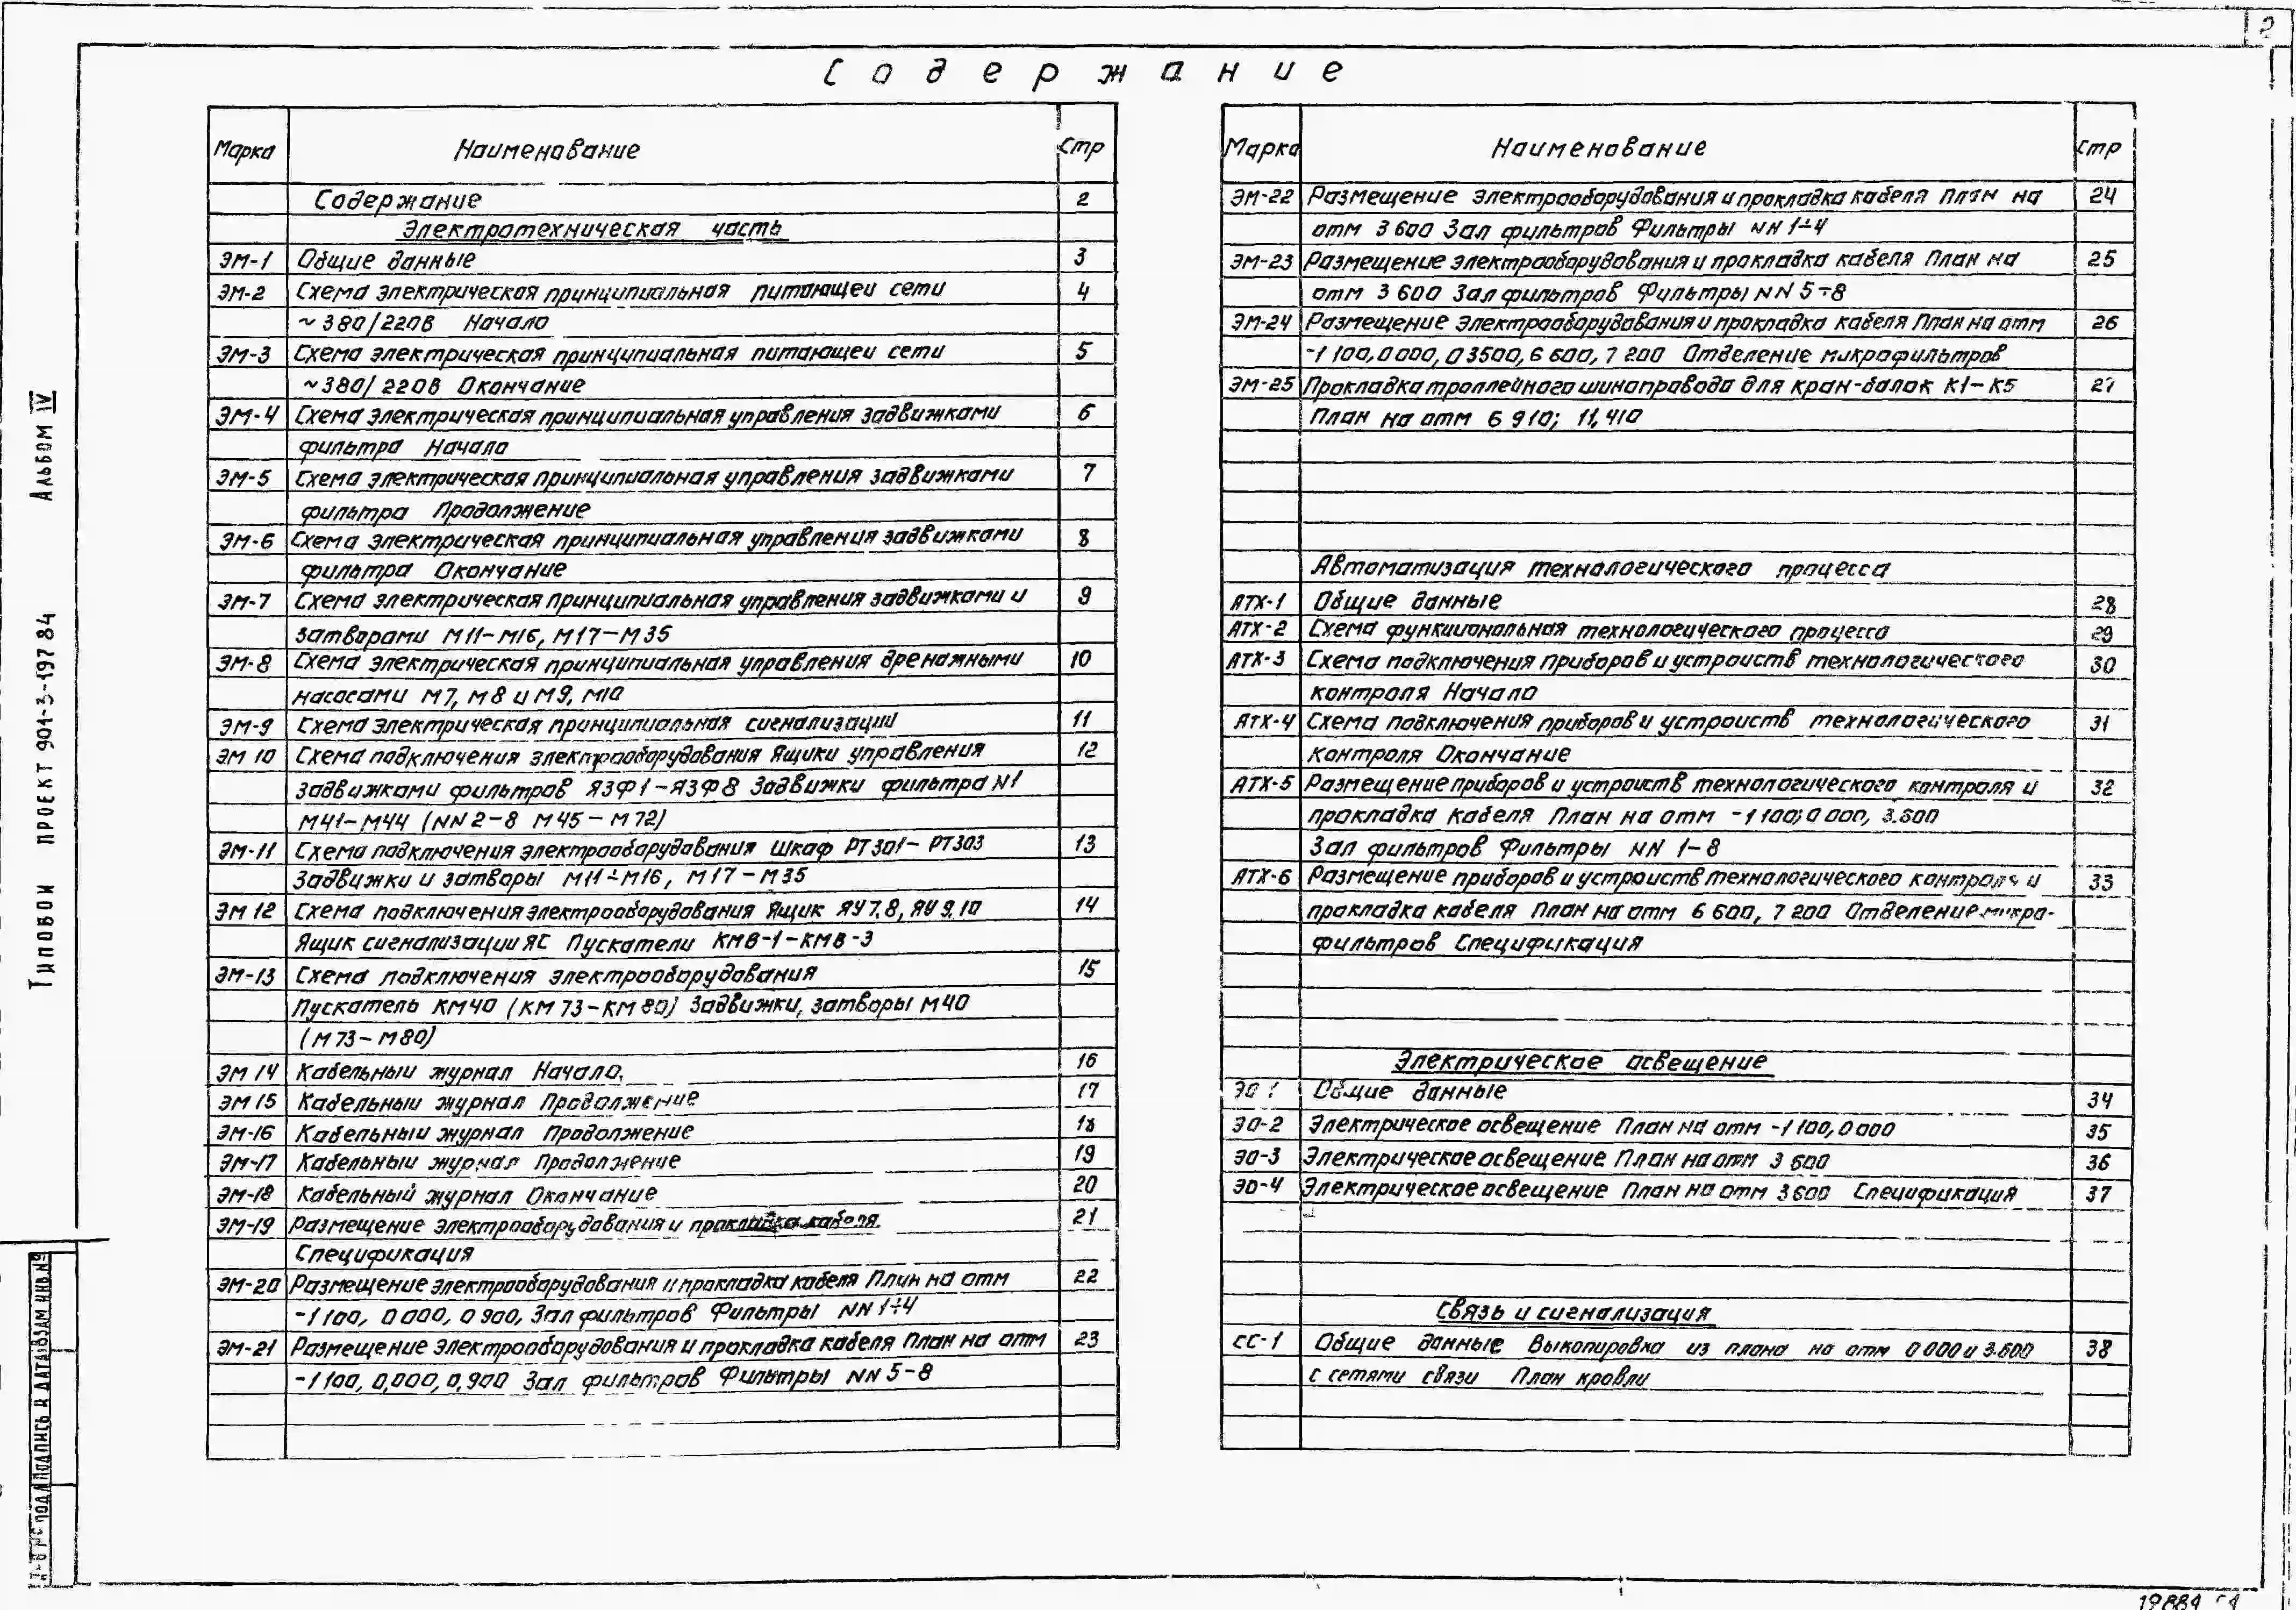 2
Содержание
Марка Наименование Стр
Содержание 2
Электротехническая часть
ЭМ-1 Общие данные 3
ЭМ-2 Схема электрическая принципиальная питающей сети 4
~380/220В Начало
ЭМ-3 Схема электрическая принципиальная питающей сети 5
~380/220В Окончание
ЭМ-4 Схема электрическая принципиальная управления задвижками 6
фильтра Начало
ЭМ-5 Схема электрическая принципиальная управления задвижками 7
фильтра Продолжение
ЭМ-6 Схема электрическая принципиальная управления задвижками 8
фильтра Окончание
ЭМ-7 Схема электрическая принципиальная управления задвижками и 9
затворами М11-М16, М17-М35
ЭМ-8 Схема электрическая принципиальная управления дренажными 10
насосами М7, М8 и М9, М10
ЭМ-9 Схема электрическая принципиальная сигнализации 11
ЭМ 10 Схема подключения электрооборудования Ящики управления 12
задвижками фильтров ЯЗФ1-ЯЗФ8 Задвижки фильтра N1
М41-М44 (NN2-8 М45-М72)
ЭМ-11 Схема подключения электрооборудования Шкаф РТ301-РТ303 13
Задвижки и затворы М11÷М16, М17-М35
ЭМ 12 Схема подключения электрооборудования Ящик ЯУ7.8, ЯУ9.10 14
Ящик сигнализации ЯС Пускатели КМВ-1-КМВ-3
ЭМ-13 Схема подключения электрооборудования 15
Пускатель КМ40 (КМ73-КМ80) Задвижки, затворы М40
(М73-М80)
ЭМ 14 Кабельный журнал Начало. 16
ЭМ 15 Кабельный журнал Продолжение 17
ЭМ-16 Кабельный журнал Продолжение 18
ЭМ-17 Кабельный журнал Продолжение 19
ЭМ-18 Кабельный журнал Окончание 20
ЭМ-19 Размещение электрооборудования и прокладка кабеля. 21
Спецификация
ЭМ-20 Размещение электрооборудования и прокладка кабеля План на отм 22
-1 100, 0 000, 0 900, Зал фильтров Фильтры NN 1÷4
ЭМ-21 Размещение электрооборудования и прокладка кабеля План на отм 23
-1 100, 0,000, 0,900 Зал фильтров Фильтры NN 5-8
Марка Наименование Стр
ЭМ-22 Размещение электрооборудования и прокладка кабеля План на 24
отм 3 600 Зал фильтров Фильтры NN 1÷4
ЭМ-23 Размещение электрооборудования и прокладка кабеля План на 25
отм 3 600 Зал фильтров Фильтры NN 5÷8
ЭМ-24 Размещение электрооборудования и прокладка кабеля План на отм 26
-1 100, 0 000, 03500, 6 600, 7 200 Отделение микрофильтров
ЭМ-25 Прокладка троллейного шинопровода для кран-балок К1-К5 27
План на отм 6 910; 11,410
Автоматизация технологического процесса
АТХ-1 Общие данные 28
АТХ-2 Схема функциональная технологического процесса 29
АТХ-3 Схема подключения приборов и устройств технологического 30
контроля Начало
АТХ-4 Схема подключения приборов и устройств технологического 31
контроля Окончание
АТХ-5 Размещение приборов и устройств технологического контроля и 32
прокладка кабеля План на отм -1 100; 0 000, 3.600
Зал фильтров Фильтры NN 1-8
АТХ-6 Размещение приборов и устройств технологического контроля и 33
прокладка кабеля План на отм 6 600, 7 200 Отделение микро-
фильтров Спецификация
Электрическое освещение
ЭО 1 Общие данные 34
ЭО-2 Электрическое освещение План на отм -1 100, 0 000 35
ЭО-3 Электрическое освещение План на отм 3 600 36
ЭО-4 Электрическое освещение План на отм 3 600 Спецификация 37
Связь и сигнализация
СС-1 Общие данные Выкопировка из плана на отм 0 000 и 3.600 38
с сетями связи План кровли
Типовой проект 901-3-197 84 Альбом IV
подл Подпись и дата Взам инв №